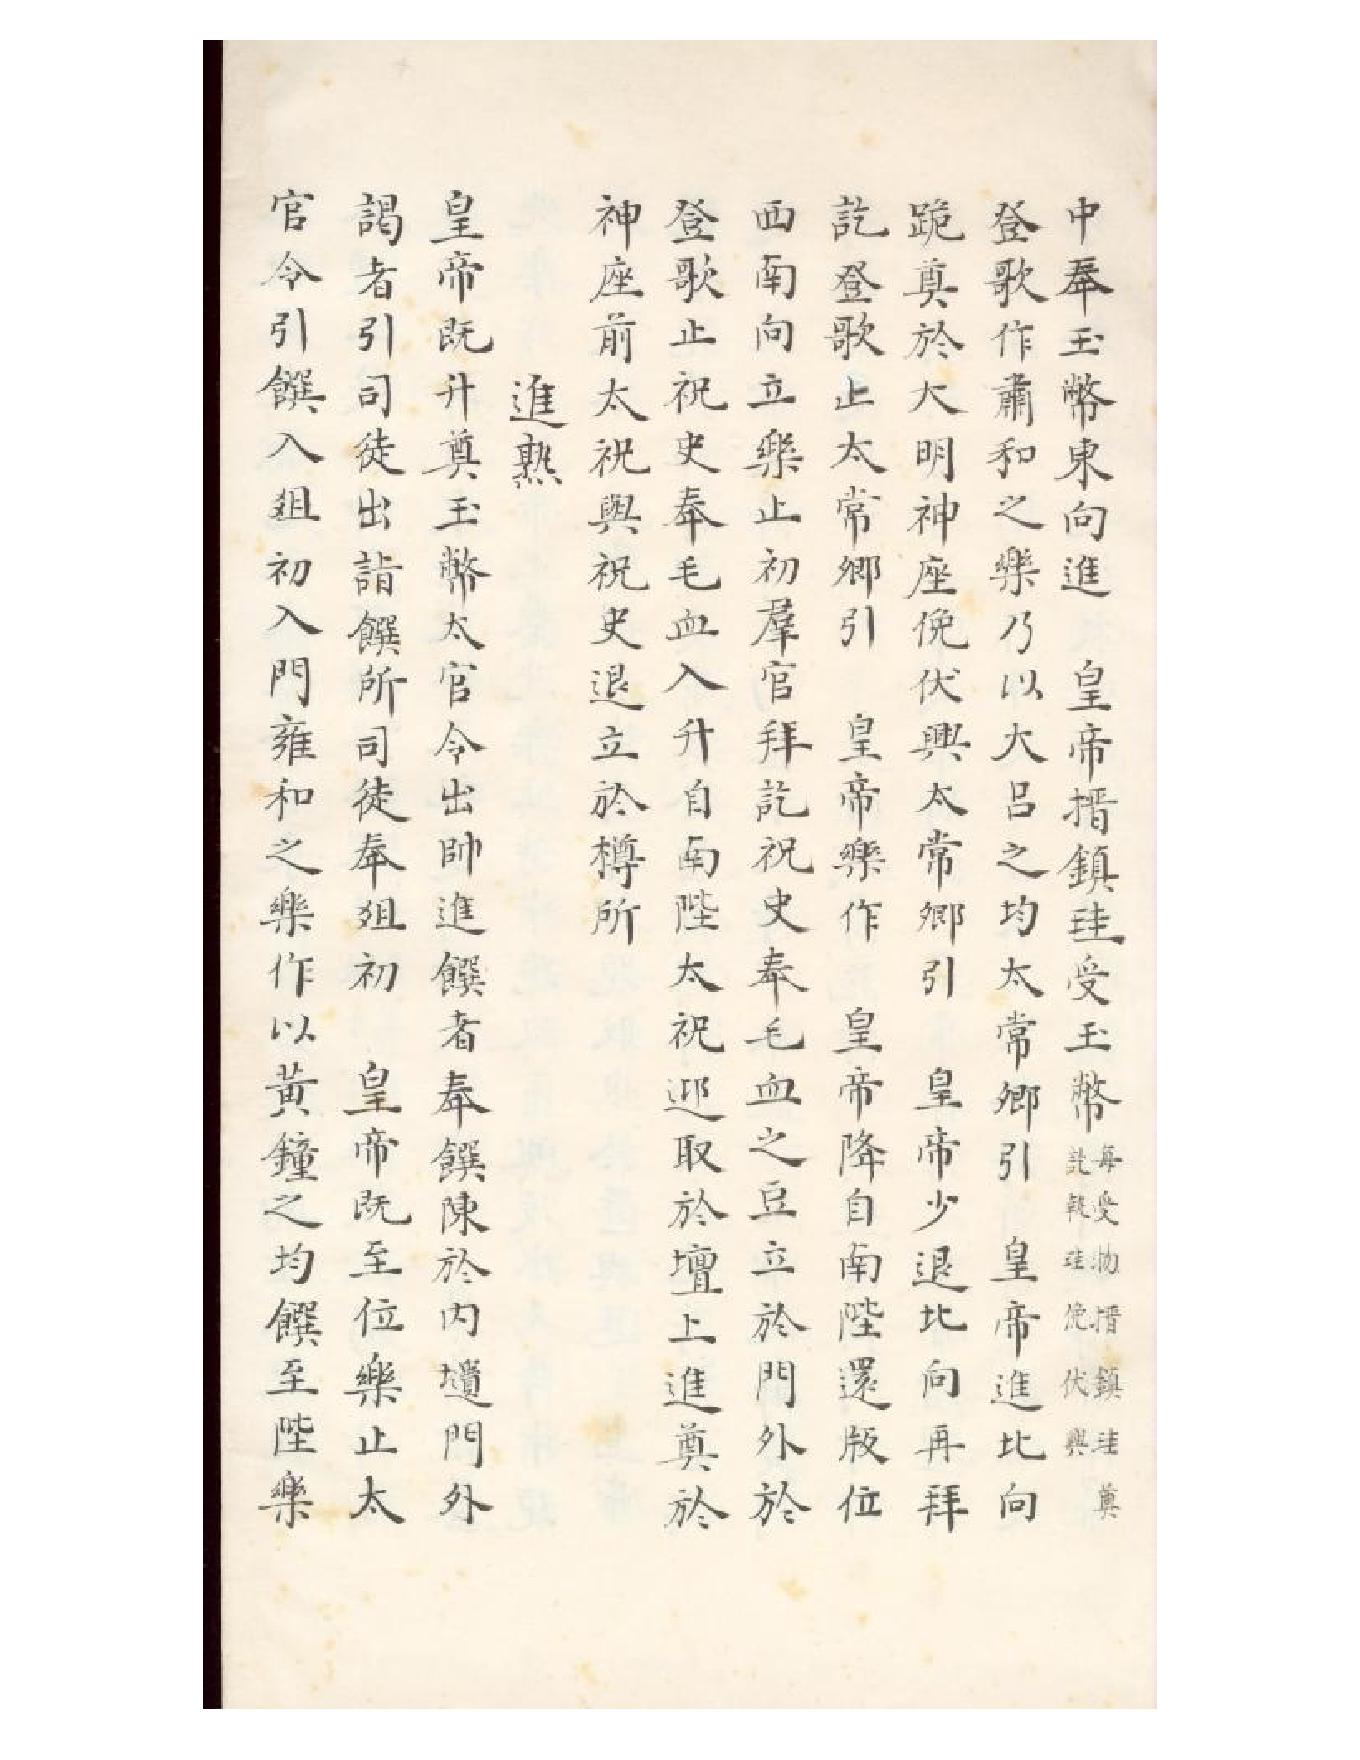 中奉玉幣東向進　皇帝搢鎮珪受玉幣每受物搢鎮珪奠訖執珪俛伏興
登歌作肅和之樂乃以大呂之均太常卿引　皇帝進北向
跪奠於大明神座俛伏興太常卿引　皇帝少退北向再拜
訖登歌止太常卿引　皇帝樂作　皇帝降自南陛還版位
西南向立樂止初羣官拜訖祝史奉毛血之豆立於門外於
登歌止祝史奉毛血入升自南陛太祝迎取於壇上進奠於
神座前太祝與祝史退立於樽所
進熟
皇帝既升奠玉幣太官令出帥進饌者奉饌陳於内壝門外
謁者引司徒出詣饌所司徒奉俎初　皇帝既至位樂止太
官令引饌入俎初入門雍和之樂作以黃鐘之均饌至陛樂